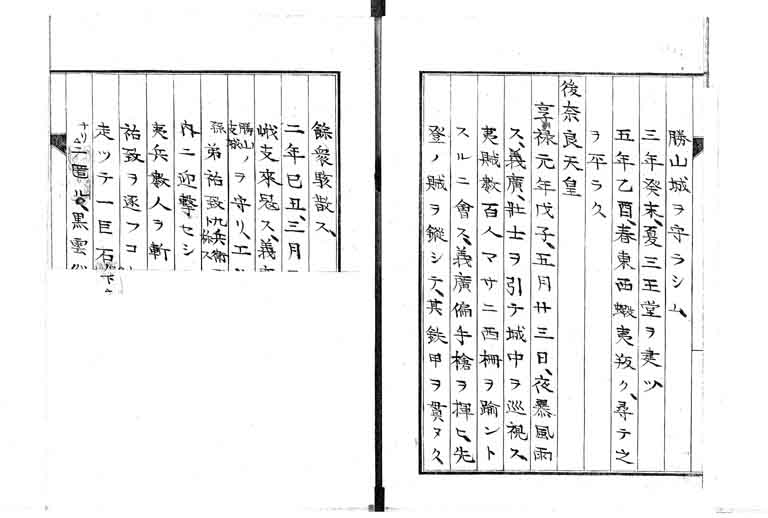 勝山城ヲ守ラシム、
三年癸未、夏三王堂ヲ建ツ
五年乙酉、春東西蝦夷叛ク、尋テ之
ヲ平ラク
後奈良天皇
享禄元年戊子、五月廿三日、夜暴風雨
ス、義廣、壯士ヲ引テ城中ヲ巡視ス、
夷賊數百人マサニ西柵ヲ踰ント
スルニ會ス、義廣偏手槍ヲ揮ヒ、先
登ノ賊ヲ鏦シテ、其鉄甲ヲ貫ヌク
餘衆駭散ス、
二年己丑、三月
峨支來寇ス、義
勝山ノ
支城
ヲ守リ、エ
孫弟祐致
九兵衛
ト称ス
内ニ迎撃セシ
夷兵數人ヲ斬
祐致ヲ逐フコ
走ツテ一巨石
ナリ
黒雲